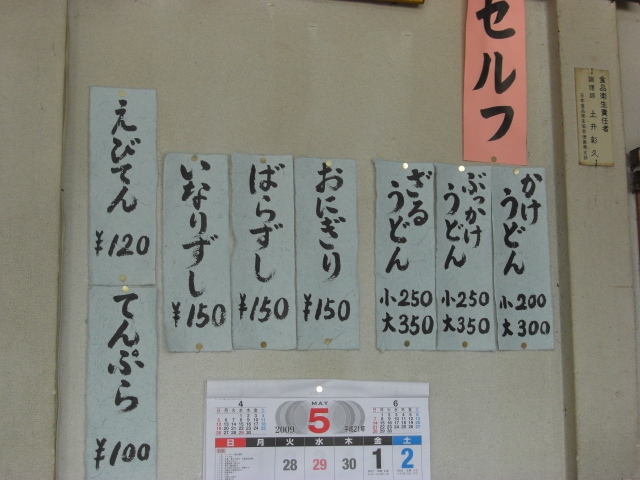 セルフ
食品衛生責任者
調理師 土井彰久
えびてん
¥120
てんぷら
¥100
いなりずし
¥150
ばらずし
¥150
おにぎり
¥150
ざる
うどん
小250
大350
ぶっかけ
うどん
小250
大350
かけ
うどん
小200
大300
4
MAY
6
2009
5
平成21年
日 月 火 水 木 金 土
28 29 30 1 2